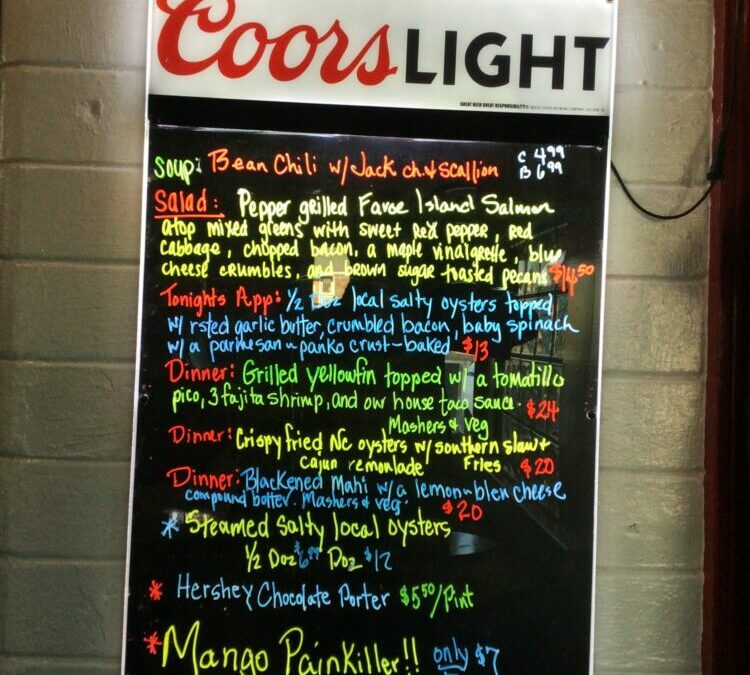 Coors LIGHT
GREAT BEER GREAT RESPONSIBILITY®
Soup: Bean Chili w/ Jack ch + scallion C 4.99
B 6.99
Salad: Pepper grilled Faroe Island Salmon
atop mixed greens with sweet red pepper, red
cabbage, chopped bacon, a maple vinaigrette, blue
cheese crumbles, and brown sugar toasted pecans $14.50
Tonights App: 1/2 Doz local salty oysters topped
w/ rsted garlic butter, crumbled bacon, baby spinach
w/ a parmesan-panko crust-baked $13
Dinner: Grilled yellowfin topped w/ a tomatillo
pico, 3 fajita shrimp, and our house taco sauce. $24
Mashers & veg
Dinner: Crispy fried NC oysters w/ southern slaw +
cajun remoulade Fries $20
Dinner: Blackened Mahi w/ a lemon-bleu cheese
compound butter. Mashers & veg. $20
* Steamed Salty local oysters
1/2 Doz $6.99 Doz $12
* Hershey Chocolate Porter $5.50/Pint
* Mango Painkiller!! only $7